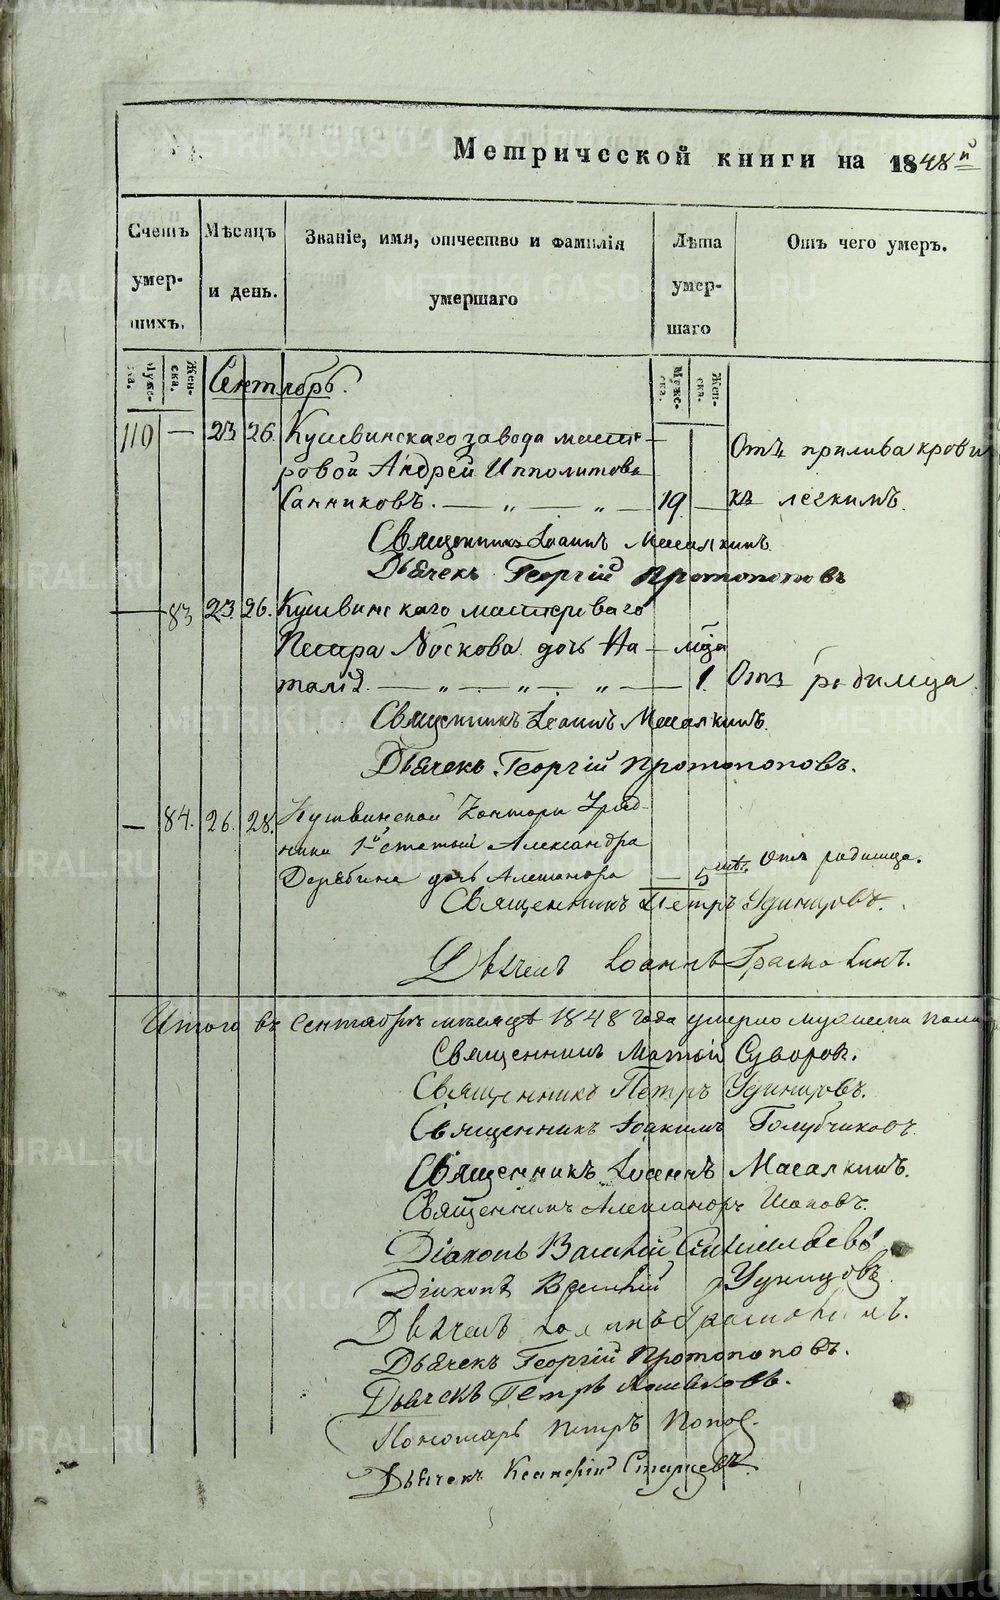 Метрической книги на 1848й
Счетъ умер- шихъ.
Мѣсяцъ и день.
Званіе, имя, отчество и фамилія умершаго
Лѣта умер- шаго
Отъ чего умеръ.
Муже- ска.
Жен- ска.
Муже- ска.
Жен- ска.
Сентябрь.
110 — 23 26. Кушвинскаго завода масте- Отъ прилива крови
ровой Андрей Ипполитовъ
Санниковъ. — „ — „ — 19. — къ легкимъ.
Священникъ Іоаннъ Масалкинъ
Дьячекъ Георгій Протопоповъ
— 83 23. 26. Кушвинскаго мастероваго
Петра Носкова дочь На — мѣ́ца
талія. — „ — „ — „ — 1. Отъ родимца.
Священникъ Іоаннъ Масалкинъ.
Дьячекъ Георгій Протопоповъ.
— 84. 26. 28. Кушвинской Конторы Уряд-
ника 1й статьи Александра
Дерябина дочь Александра — 5 лѣт. Отъ родимца.
Священникъ Петръ Удинцовъ.
Дьячекъ Іоаннъ Грамолинъ.
Итого въ Сентябрѣ мѣсяцѣ 1848 года умерло мужеска пола
Священникъ Матѳій Суворовъ.
Священникъ Петръ Удинцовъ.
Священникъ Іоакимъ Голубчиковъ.
Священникъ Іоаннъ Масалкинъ.
Священникъ Александръ Поповъ.
Діаконъ Василій
Діаконъ Василій Удинцовъ
Дьячекъ Іоаннъ Грамолинъ.
Дьячекъ Георгій Протопоповъ.
Дьячекъ Петръ
Пономарь Петръ Попов.
Дьячекъ Старцевъ.
METRIKI.GASO-URAL.RU